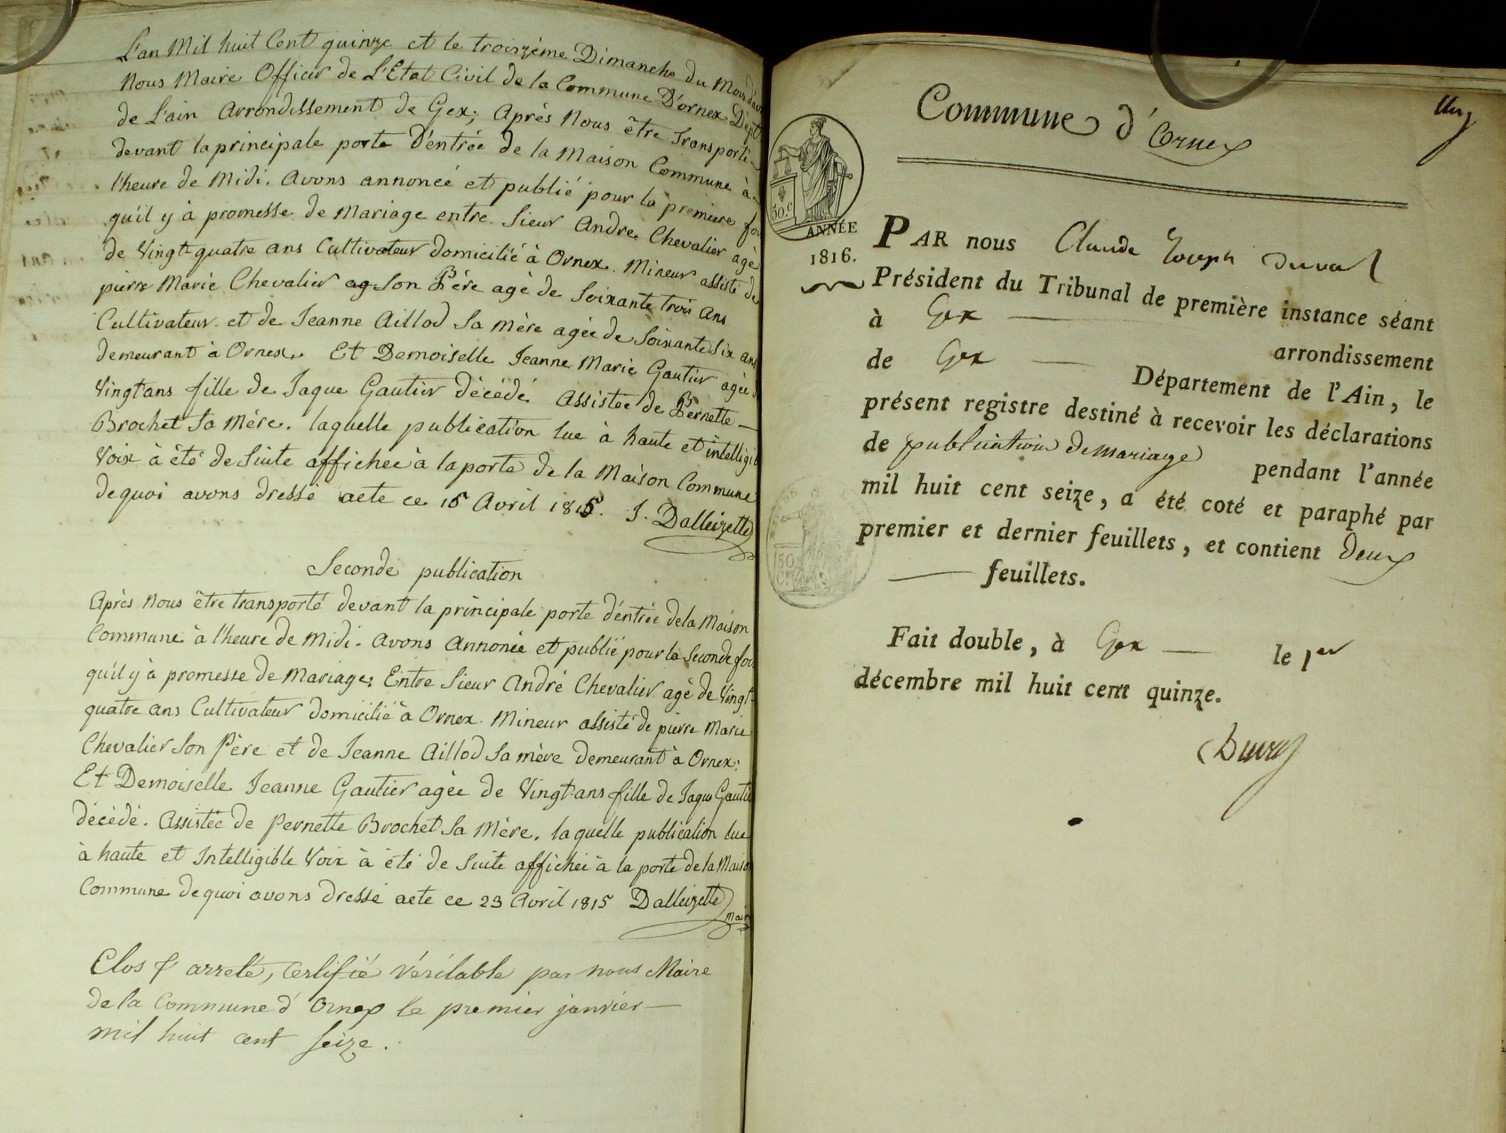 L'an Mil huit Cent quinze et le troizième Dimanche du Mois
Nous Maire Officier de L'Etat Civil de la Commune D'ornex Dépt
de L'ain arrondissement de Gex; Après Nous être Transporté
devant la principale porte D'éntrée de la Maison Commune à
l'heure de Midi. avons annoncé et publié pour la premiere foi
qu'il y à promesse de Mariage entre Sieur André Chevalier agé
de Vingt-quatre ans Cultivateur domicilié à Ornex. Mineur assisté de
pierre Marie Chevalier ag Son Pére agé de Soixante trois ans
Cultivateur. et de Jeanne Aillod Sa Mère agée de Soixante Six ans
demeurant à Ornex. Et Demoiselle Jeanne Marie Gautier agée
Vingt ans fille de Jaque Gautier décédé assistée de Pernette
Brochet Sa Mére. laquelle publication lue à haute et intelligi
Voix à été de Suite affichée à la porte de la Maison Commune
de quoi avons dressé acte ce 16 Avril 1815. J. Dalleizette
Seconde publication
Après Nous être transporté devant la principale porte d'éntrée de la Maison
Commune à l'heure de Midi. avons Annoncé et publié pour la Seconde foi
qu'il y à promesse de Mariage; Entre Sieur André Chevalier agé de Vingt-
quatre ans Cultivateur domicilié à Ornex. Mineur assisté de pierre Marie
Chevalier Son Père et de Jeanne Aillod Sa mère demeurant à Ornex;
Et Demoiselle Jeanne Gautier agée de Vingt-ans fille de Jaque Gautie
décédé. assistée de Pernette Brochet Sa Mère. laquelle publication lue
à haute et Intelligible Voix à été de Suite affichée à la porte de la Maison
Commune de quoi avons Dressé acte ce 23 Avril 1815 Dalleizette
maire
Clos & arreté, certifié véritable par nous Maire
de la Commune d'Ornex le premier janvier
mil huit cent seize.
Commune d'Ornex
50.c
ANNÉE
1816.
PAR nous Claude Joseph Duval
Président du Tribunal de première instance séant
à Gex arrondissement
de Gex Département de l'Ain, le
présent registre destiné à recevoir les déclarations
de publication de mariage pendant l'année
mil huit cent seize, a été coté et paraphé par
premier et dernier feuillets, et contient deux
feuillets.
Fait double, à Gex le 1er
décembre mil huit cent quinze.
Duval